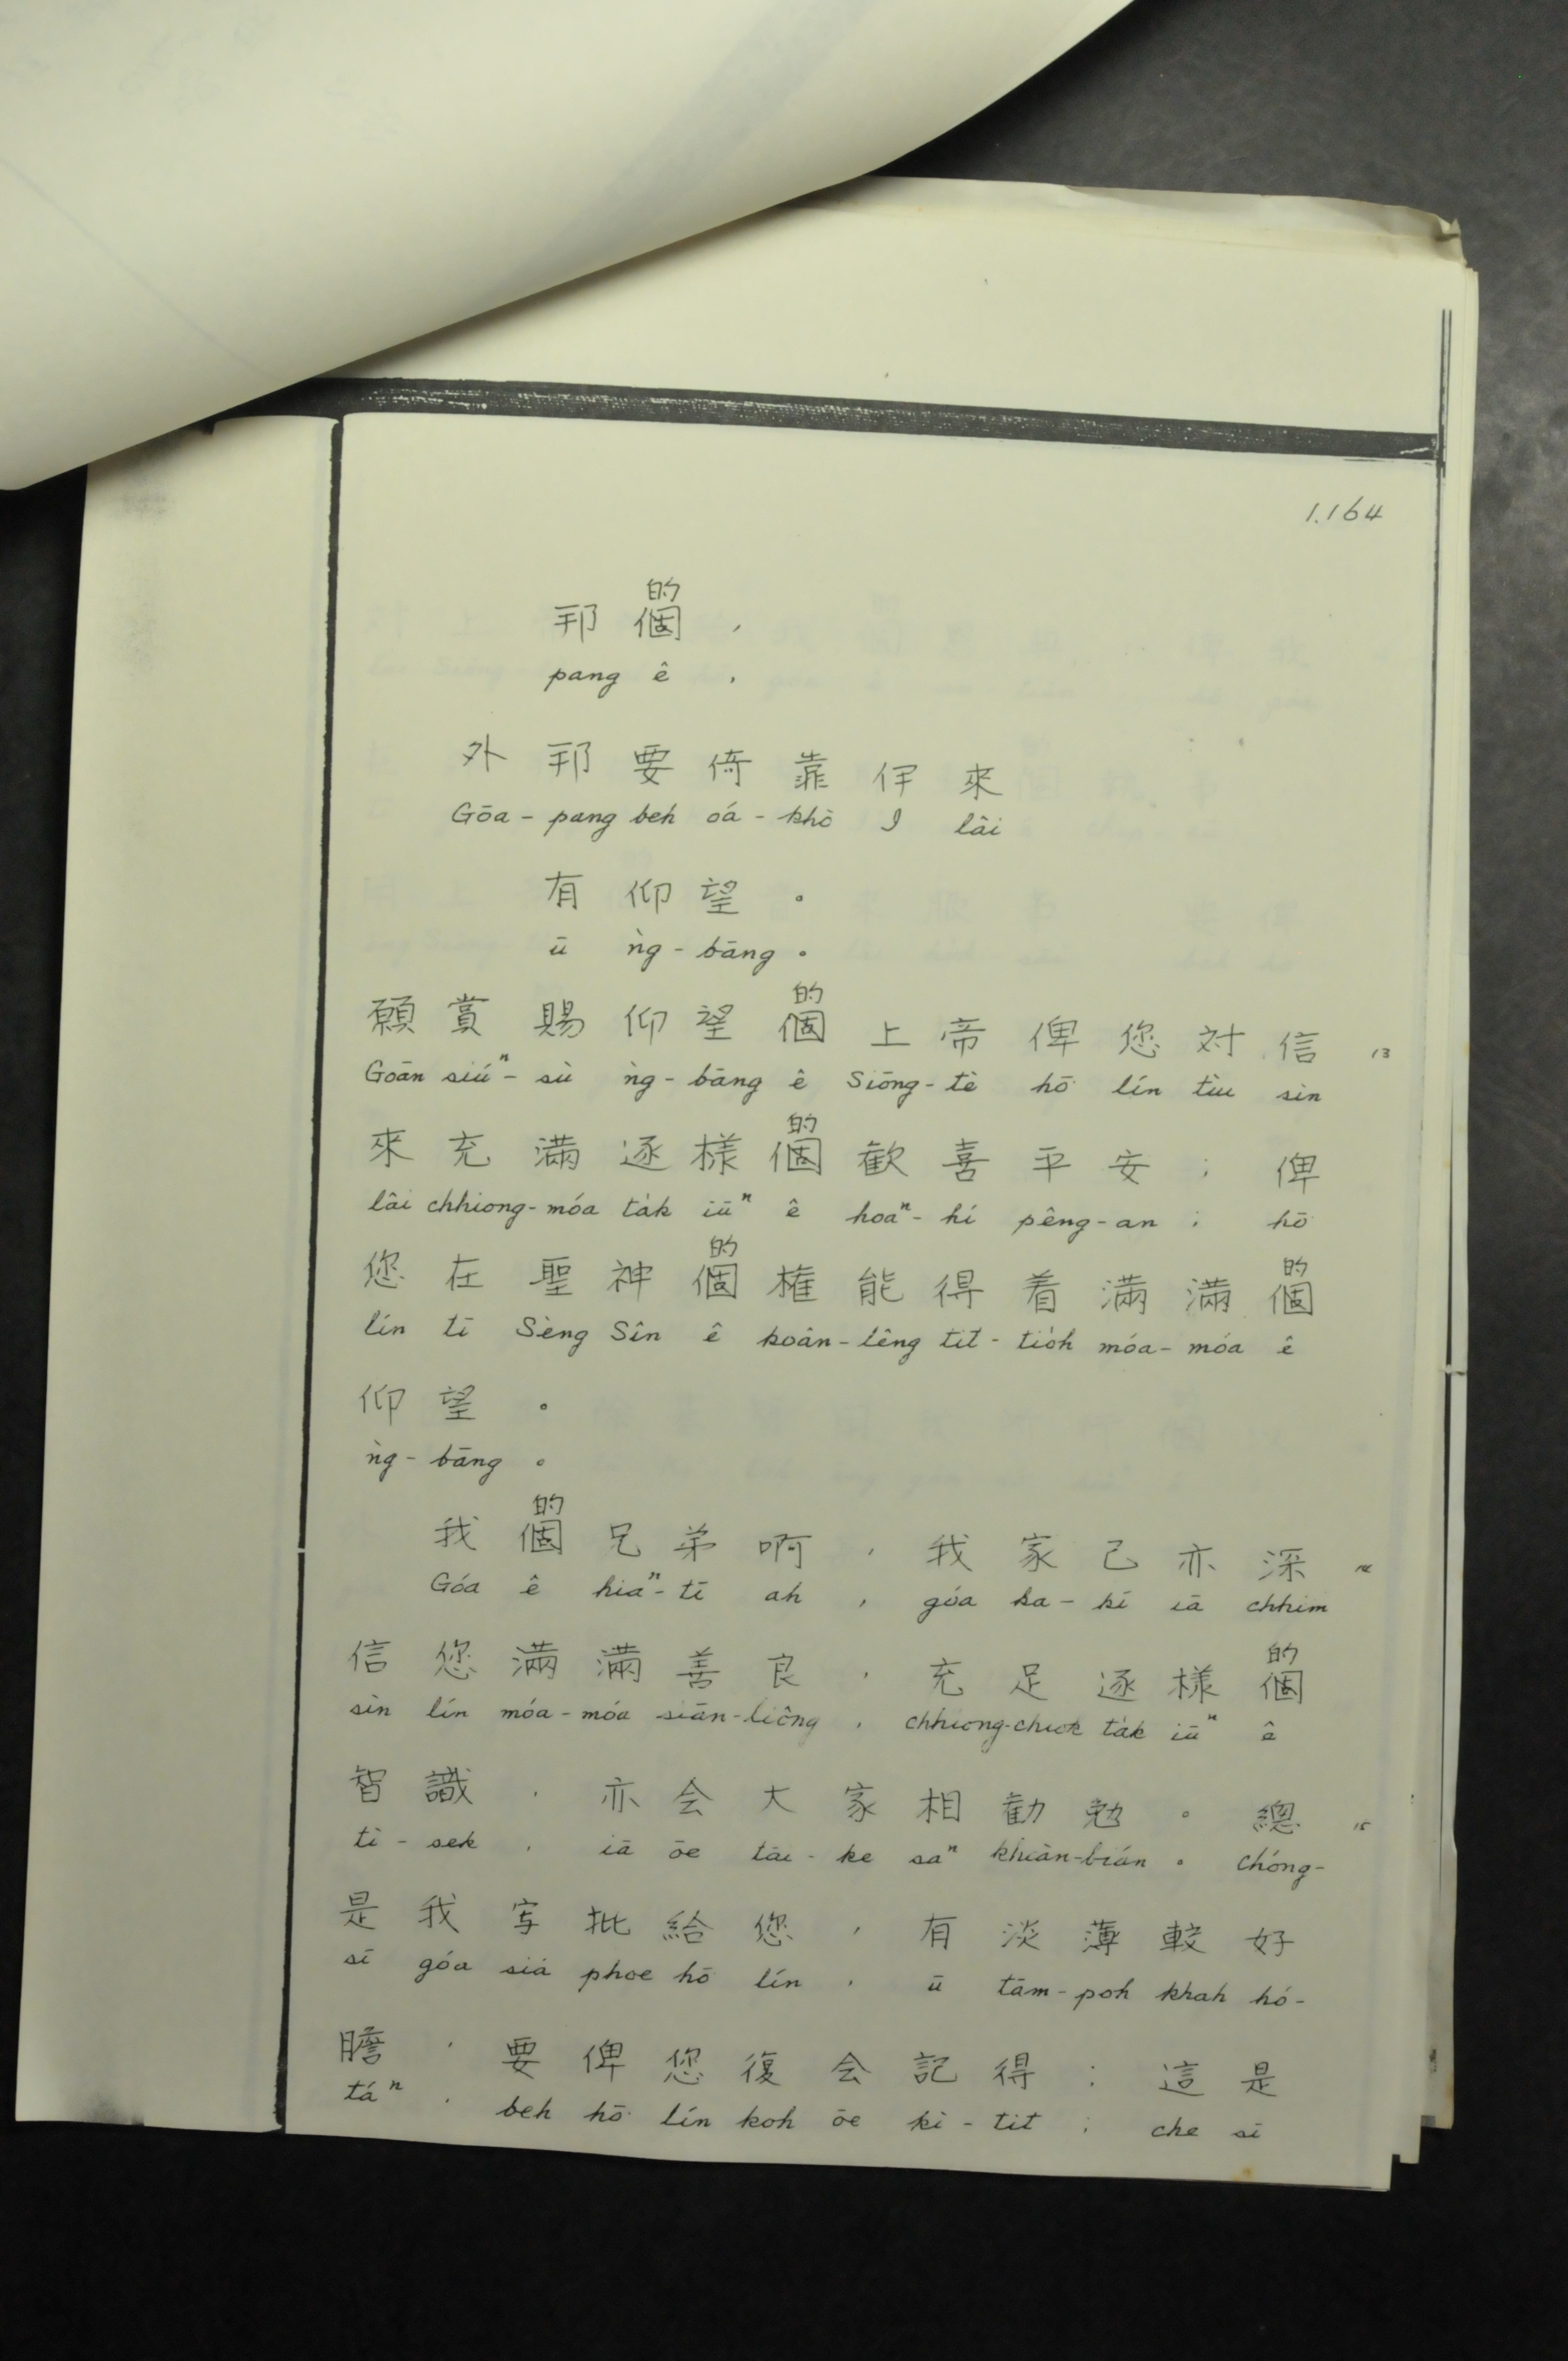 1.164
的
邦個，
pang ê ,
外邦要倚靠伊來
Gōa-pang beh oá-khò I lâi
有仰望。
ū ǹg-bāng 。
的
願賞賜仰望個上帝俾您対信 13
Goān siúⁿ-sù ǹg-bāng ê Siōng-tè hō͘ lín tùi sìn
的
來充滿逐樣個歡喜平安；俾
lâi chhiong-móa ta̍k iūⁿ ê hoaⁿ-hí pêng-an ; hō͘
的 的
您在聖神個権能得着滿滿個
lín tī Sèng Sîn ê koân-lêng tit-tio̍h móa-móa ê
仰望。
ǹg-bāng 。
的
我個兄弟啊，我家己亦深 14
Góa ê hiaⁿ-tī ah , góa ka-kī iā chhim
的
信您滿滿善良，充足逐樣個
sìn lín móa-móa siān-liông , chhiong-chiok ta̍k iūⁿ ê
智識，亦会大家相勸勉。總 15
tì-sek , iā ōe tāi-ke saⁿ khiàn-bián 。 chóng-
是我写批給您，有淡薄較好
sī góa siá phoe hō͘ lín , ū tām-poh khah hó-
膽，要俾您復会記得；這是
táⁿ , beh hō͘ lín koh ōe kì-tit ; che sī